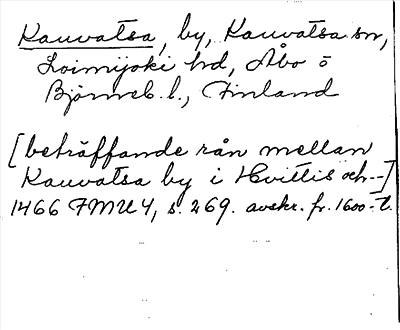 Kauvatsa, by, Kauvatsa sn,
Loimijoki hd, Åbo o
Björneb. l., Finland
[beträffande rån mellan
Kauvatsa by i Hvittis och --]
1466 FMU 4, s. 269. avskr. fr. 1600-t.